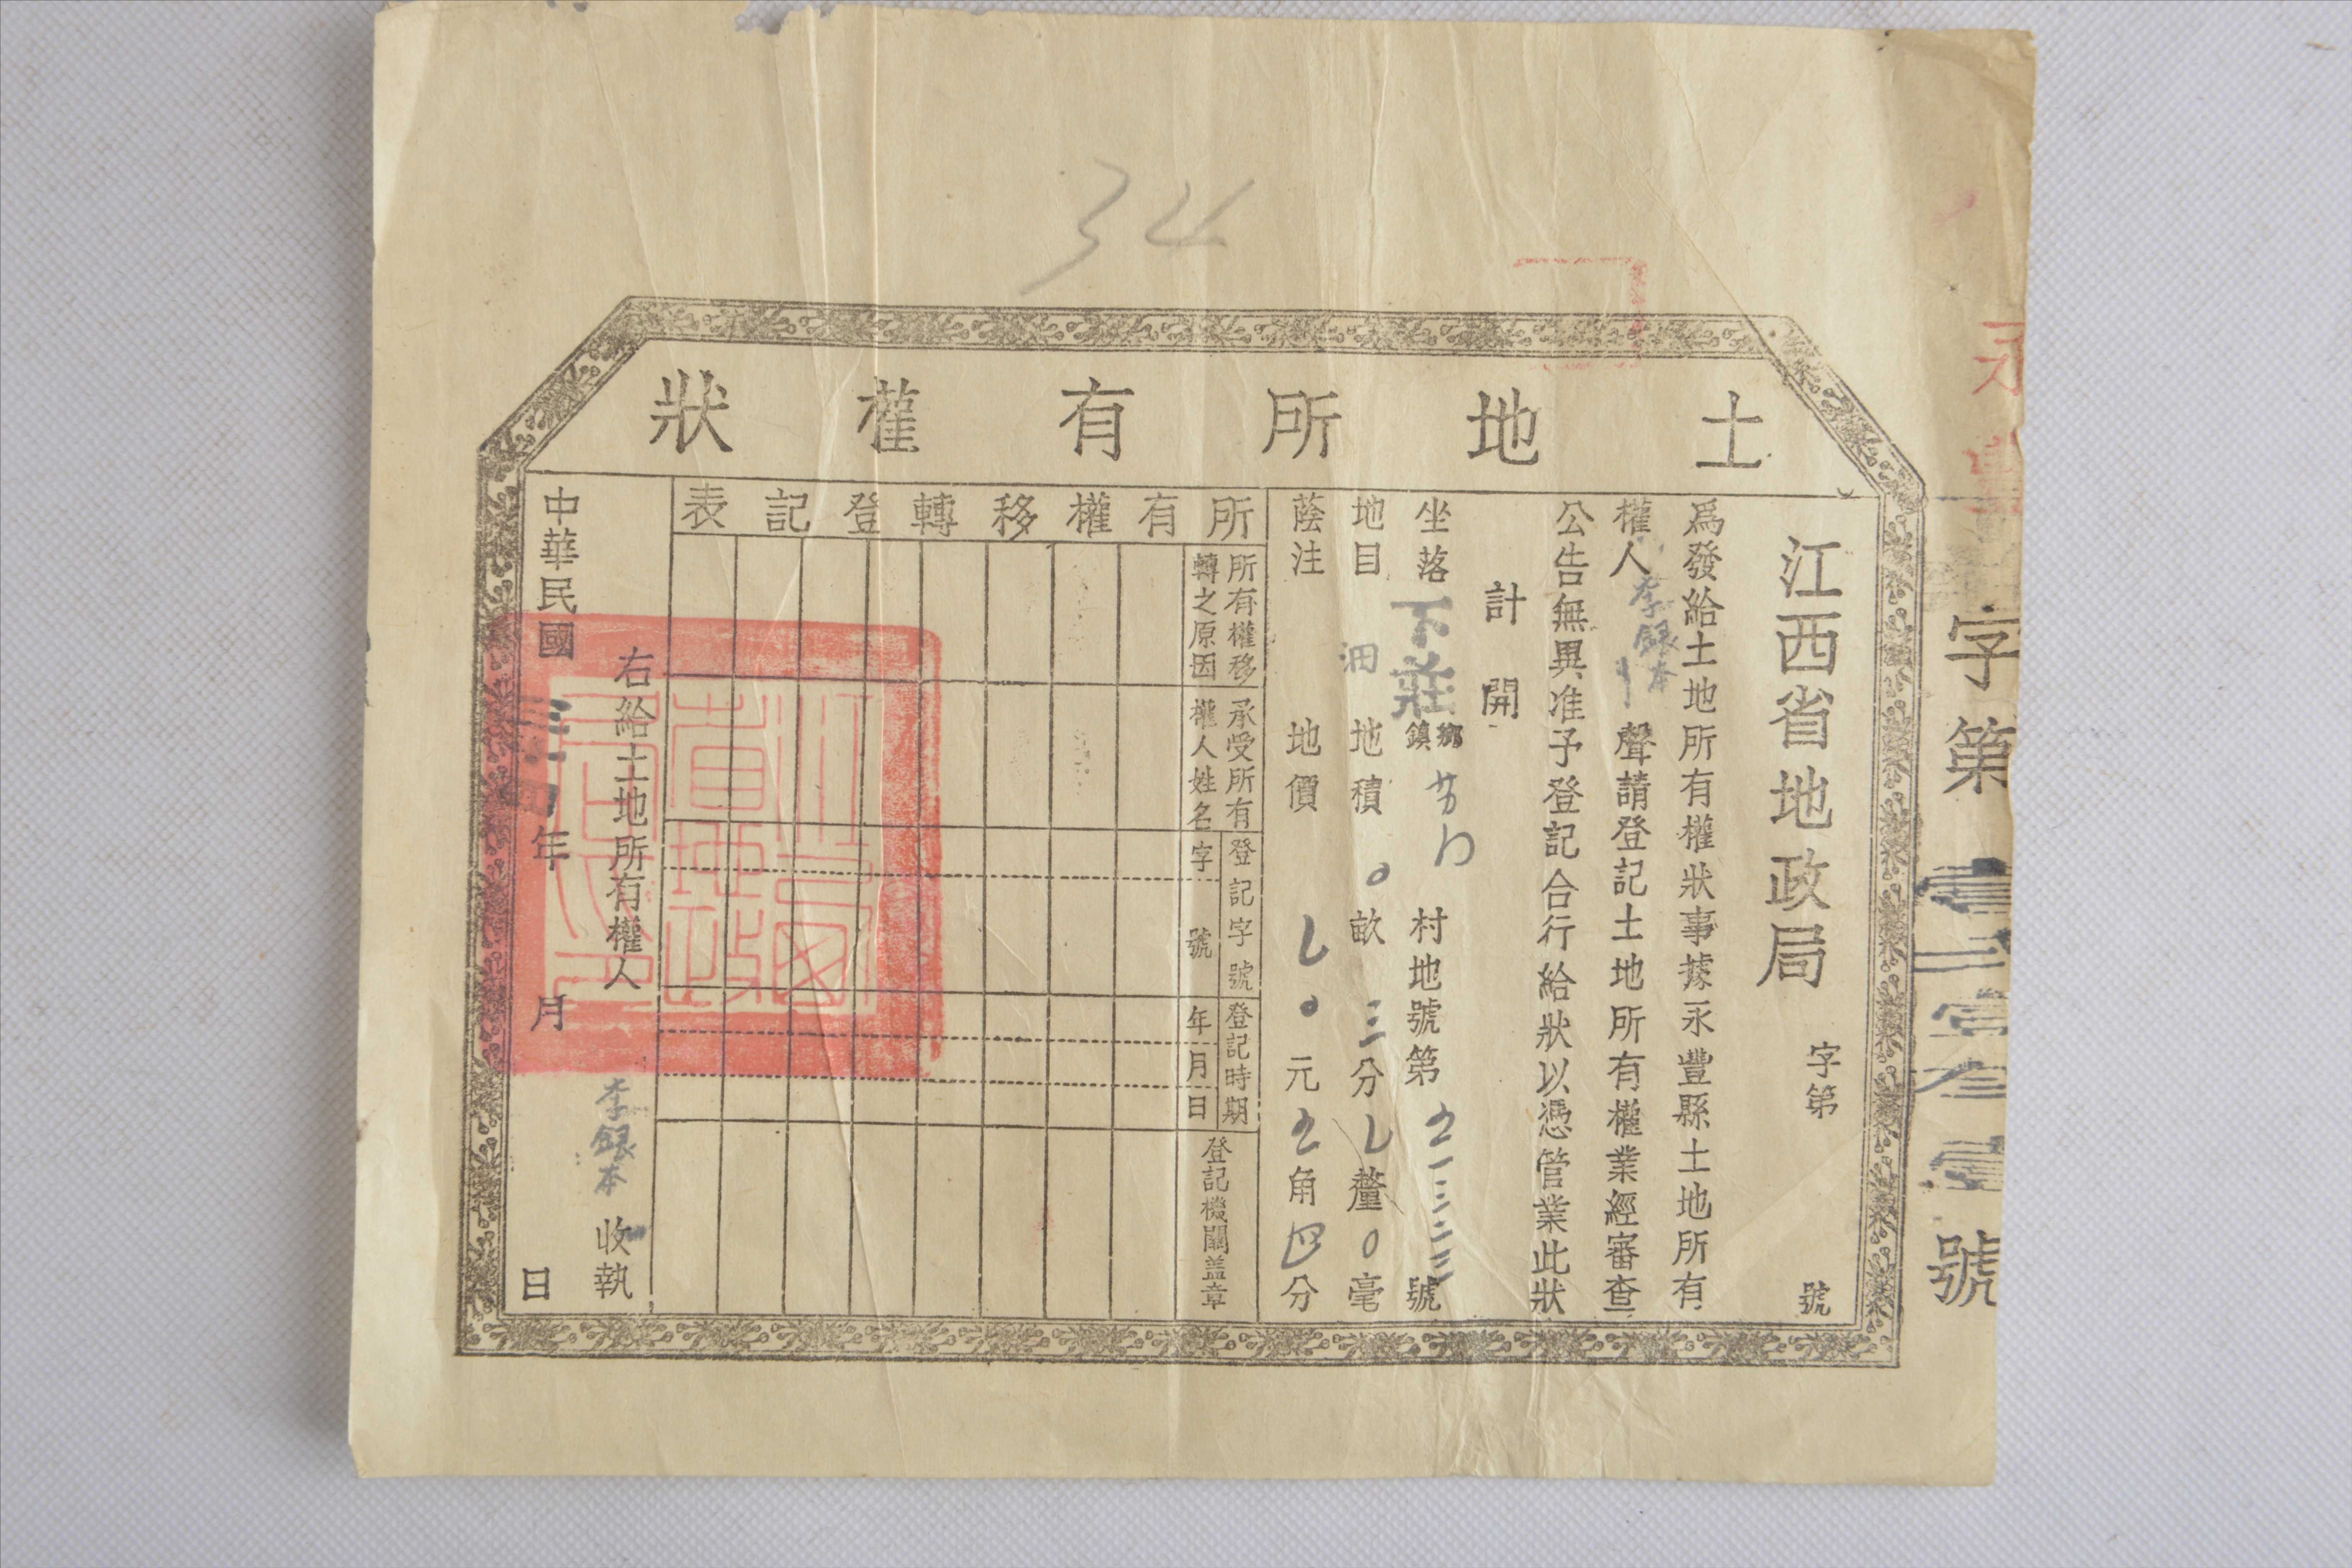 34
土地所有權狀
字第 號
江西省地政局 字第 號
為發給土地所有權狀事據永豐縣土地所有
權人李銀本聲請登記土地所有權業經審查
公告無異准予登記合行給狀以憑管業此狀
計開
坐落下莊鄉鎮 村地號第 號
地目 地積 畝三分 釐0毫
蔭注 地價 元 角四分
所有權移轉登記表
所有權移轉之原因
承受所有權人姓名
登記字號
字 號
登記時期
年 月 日
登記機關盖章
右給土地所有權人李銀本收執
中華民國三十四年 月 日